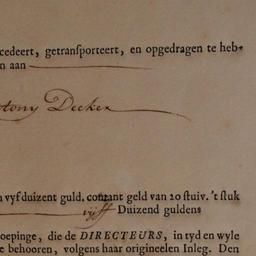 cedeert, getransporteert, en opgedragen te heb-
n aan
tony Decker
n vyf duizent guld. contant geld van 20 stuiv. 't stuk
vijff Duizend guldens
oepinge, die de DIRECTEURS, in tyd en wyle
e behooren, volgens haar origineelen Inleg. Den